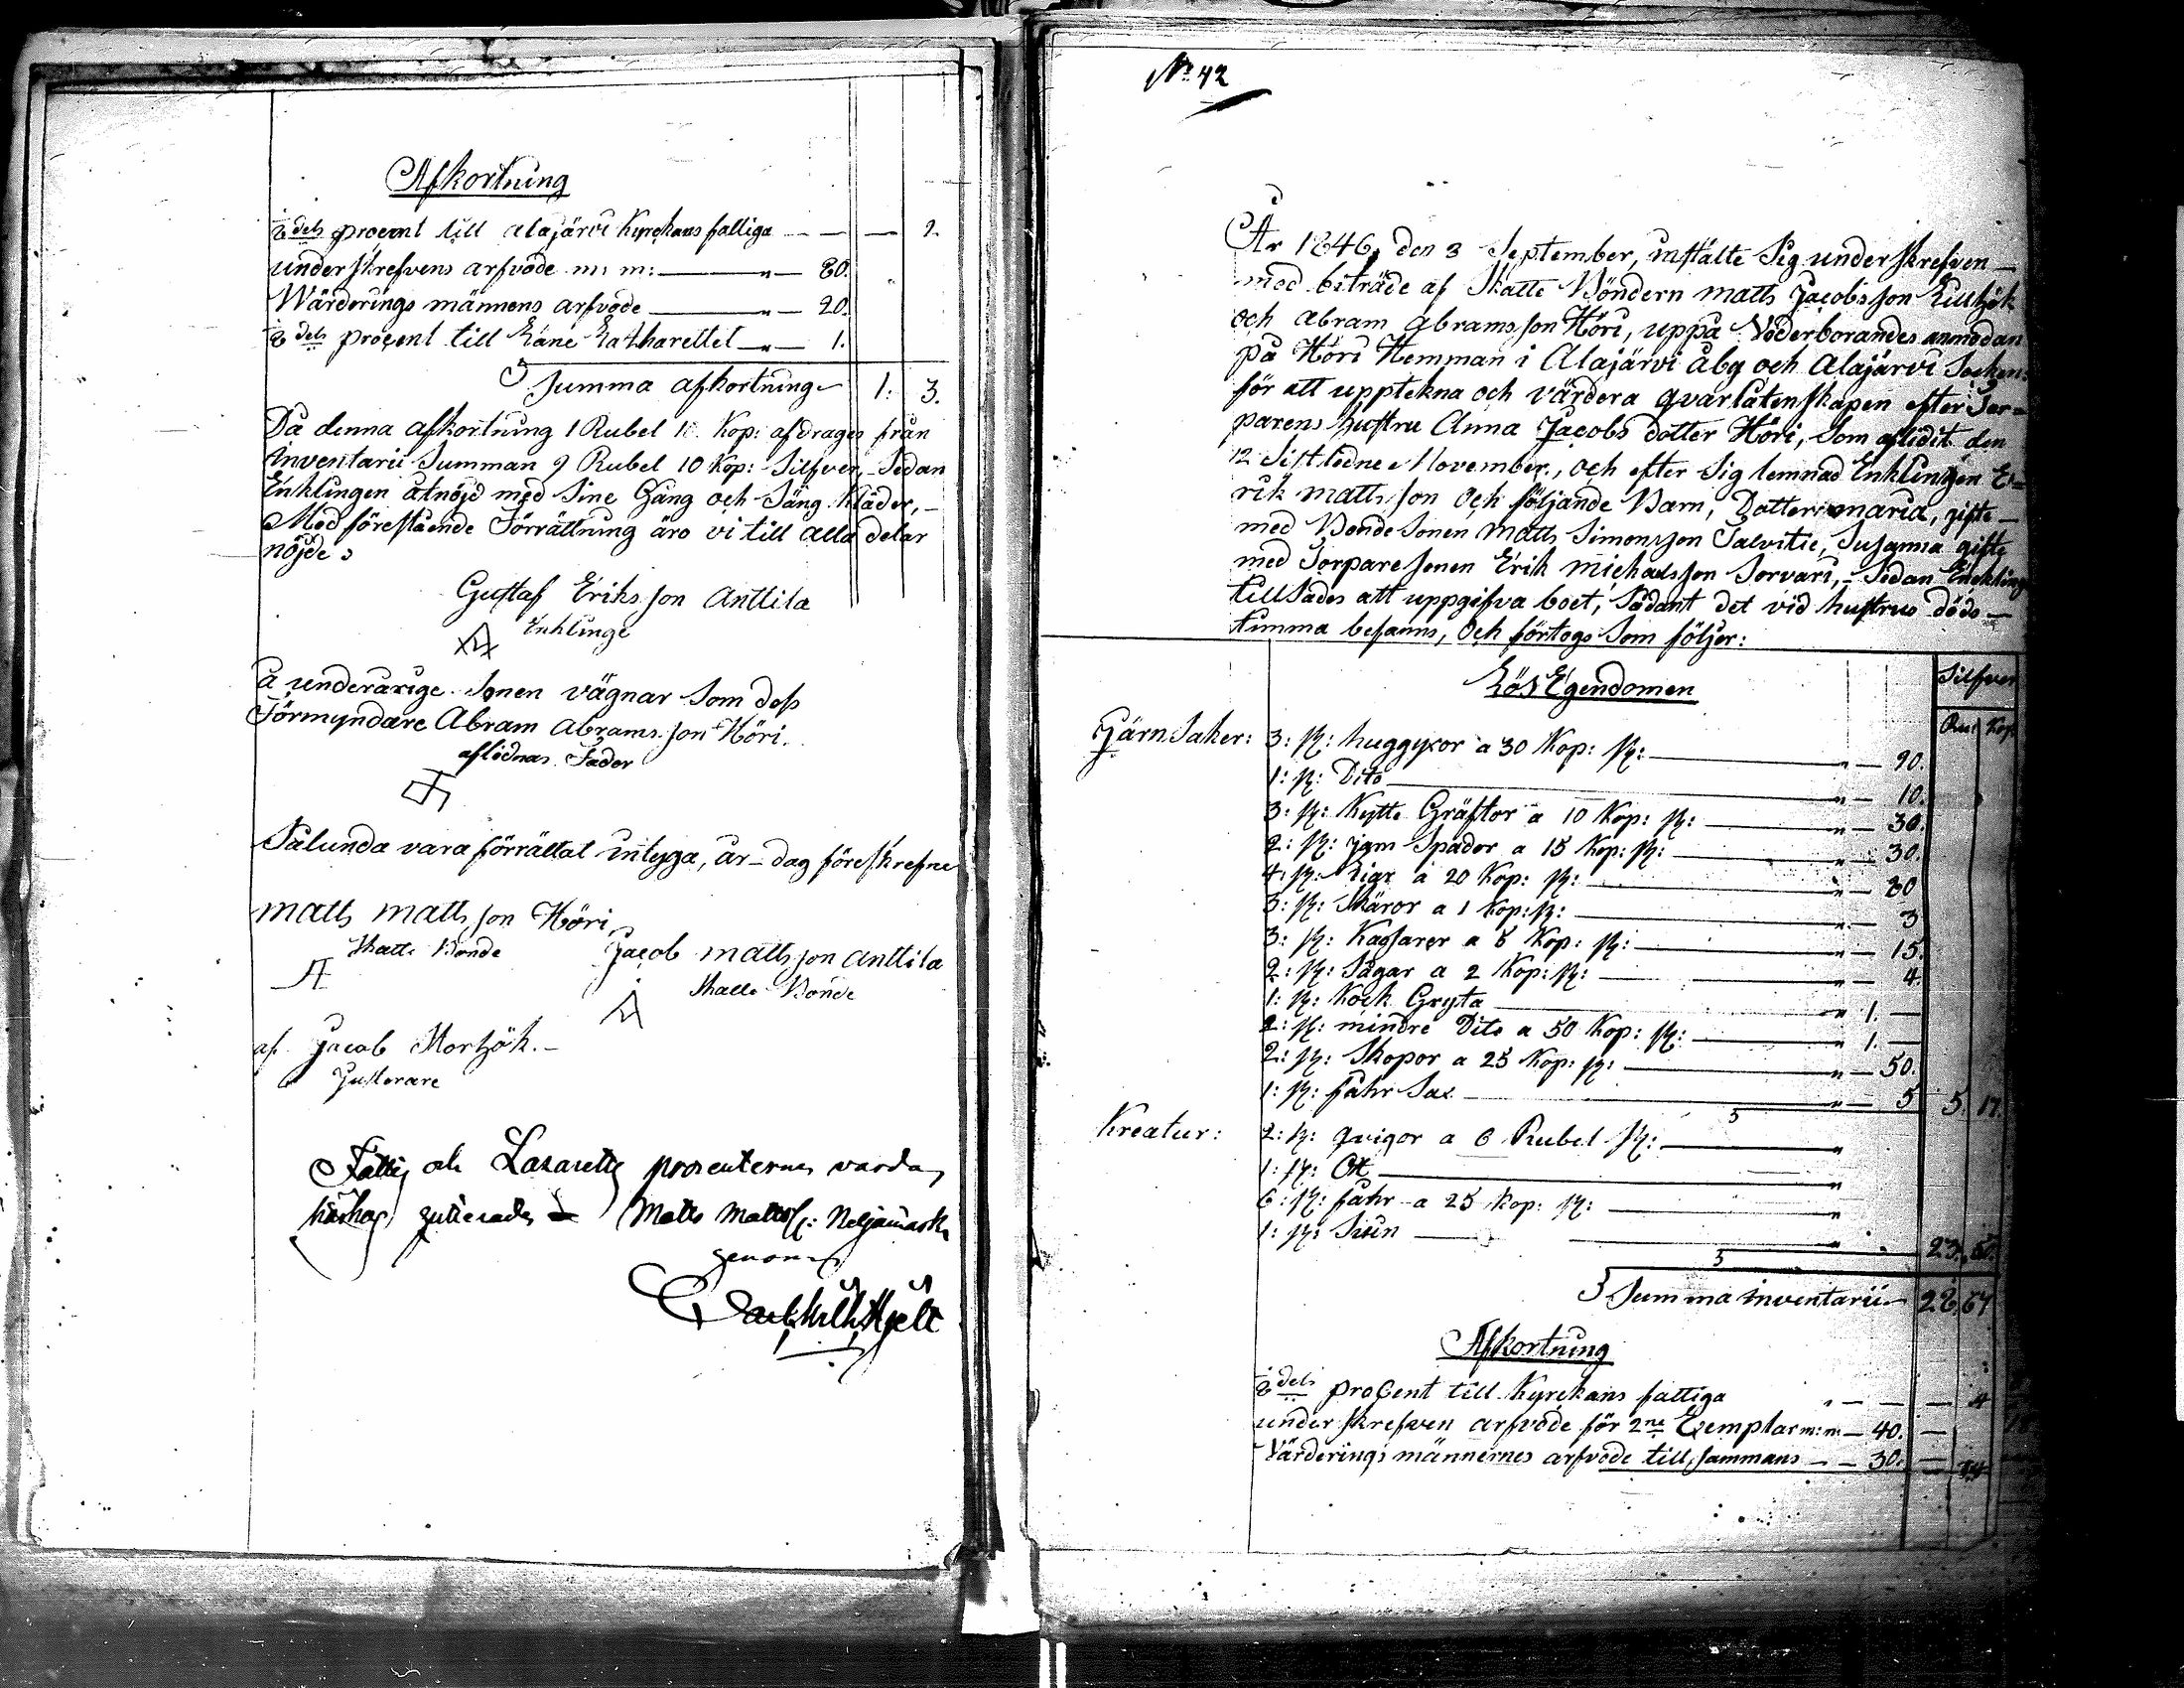 Afkortning
1/8 dels procent till Alajärvi Kyrckans fattiga — — — 2.
underskrefvens arfvode m: m: — " — 80.
Wärderings männens arfvode — " — 20.
1/8 dels procent till Läne Latzarettet — " — 1.
Summa afkortning 1: 3.
Då denna afkortning 1 Rubel Kop: afdrages från
Inventarii Summan 9 Rubel 10 Kop: Silfver, Sedan
Enklingen åtnöjd med Sine Gång och Säng Kläder, —
Med förestående Förrättning äro vi till alla delar
nöjde
Gustaf Eriksson Anttila
Enklinge
å underårige Sonen vägnar Som dess
Förmyndare Abram Abramsson Höri.
aflidnas Fader
Sålunda vara förrättat intyga, år — dag föreskrefne
Matts Mattsson Höri
Skatte Bonde
Jacob Mattsson Anttila
Skatte Bonde
af Jacob Mortzök. —
Justerare
Fattig och Lazaretts procenterna varda
Matts Mattss: Neljämark
genom
Carl Wilh. Hjelt
No 42
År 1846, den 3 September, instälte Sig underskrefven —
med biträde af Skatte Böndern Matts Jacobsson Lilltzök
och Abram Abramsson Höri, uppå Vederborandes anmodan
på Höri Hemman i Alajärvi åby och Alajärvi Socken
för att upptekna och värdera qvarlåtenskapen efter Tor=
parens hustru Anna Jacobs dotter Höri, Som aflidit den
12 Sistledne November, och efter Sig lemnad Enklingen E=
rik Mattsson och följande Barn, Dotter Maria, gifte —
med Bonde Sonen Matts Simonsson Salvitie, Susanna gifte
med Torpare Sonen Erik Michaelsson Sorvari, — Sedan Enckling
tillsades att uppgifva boet, Sådant det vid hustrus döds —
timma befanns, och förtogs Som följer:
Lös Egendomen
Silfver
Ru: Kop
Järn Saker: 3: st: huggyxor a 30 Kop: st: — " — 90.
1: st: Dito — " — 10.
3: st: Kytte Gräftor a 10 Kop: st: — " — 30.
2: st: jern Spador a 15 Kop: st: — " — 30.
4: st: Liar a 20 Kop: st: — " — 80
3: st: Skäror a 1 Kop: st: — " — 3
3: st: a 5 Kop: st: — " — 15.
2: st: Sågar a 2 Kop: st: — " — 4.
1: st: Kock Gryta — " 1. —
2: st: mindre Dito a 50 Kop: st: — " 1. —
2: st: Skopor a 25 Kop: st: — " — 50.
1: st: fåhr Sax — " — 5 5. 17.
Kreatur: 2: st: qvigor a 6 Rubel st: — "
1: st: — "
6: st: fåhr a 25 Kop: st: — "
1: st: Svin — " 23. 50.
Summa inventarii 28. 67
Afkortning
1/8 dels procent till Kyrckans fattiga — — — 4
underskrefven arfvode för 2ne Exemplar m: m: — 40. —
Värderings männernes arfvode till sammans — — 30. — 74